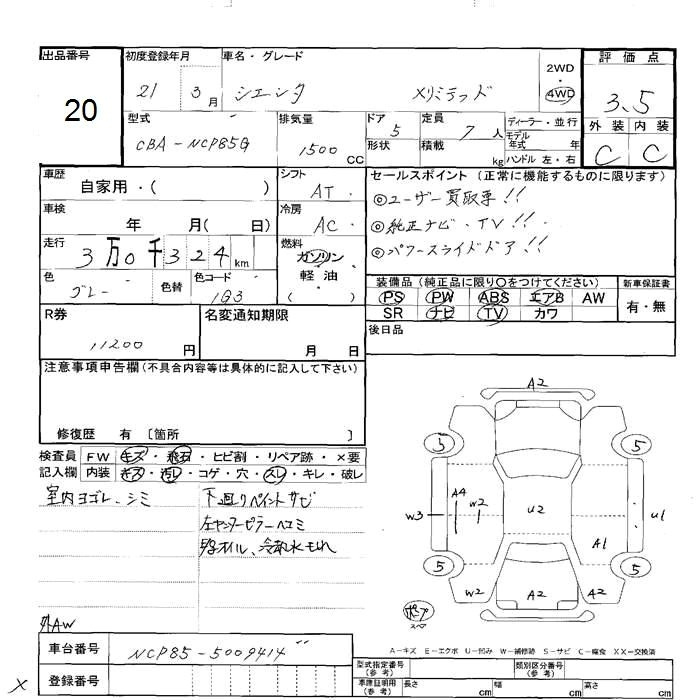 出品番号 初度登録年月 車名・グレード 2WD 評価点
20 21 3月 シエンタ Xリミテッド ・
4WD 3.5
型式 排気量 ドア 定員 ディーラー・並行 外装 内装
CBA-NCP85G 1500CC 5 7人 モデル年式 年 C C
形状 積載 kg ハンドル 左・右
車歴 シフト セールスポイント (正常に機能するものに限ります)
自家用・( ) AT ◎ユーザー買取車!!
車検 冷房 ◎純正ナビ・TV!!
年 月( 日) AC ◎パワースライドドア!!
走行 燃料
3万0千324km ガソリン
軽油
( )
色 色替 色コード
グレー 1G3
装備品 (純正品に限り○をつけてください) 新車保証書
PS PW ABS エアB AW 有・無
SR ナビ TV カワ
R券 名変通知期限 後日品
11200円 月 日
注意事項申告欄(不具合内容等は具体的に記入して下さい)
修復歴 有 〔箇所 〕
検査員 FW キズ・飛石・ヒビ割・リペア跡・×要
記入欄 内装 キズ・汚レ・コゲ・穴・スレ・キレ・破レ
室内ヨゴレ、シミ 下廻りペイントサビ
左センターピラーヘコミ
オイル、冷却水モレ
外AW
A2
3 5
W3 A4 W2 U2 U1
A1
5 5
W2 A2 A2
A-キズ E-エクボ U-凹み W-補修跡 S-サビ C-腐食 XX-交換済
車台番号 NCP85-5009414
登録番号
型式指定番号(参考) 類別区分番号(参考)
車庫証明用(参考) 長さ cm 幅 cm 高さ cm
X